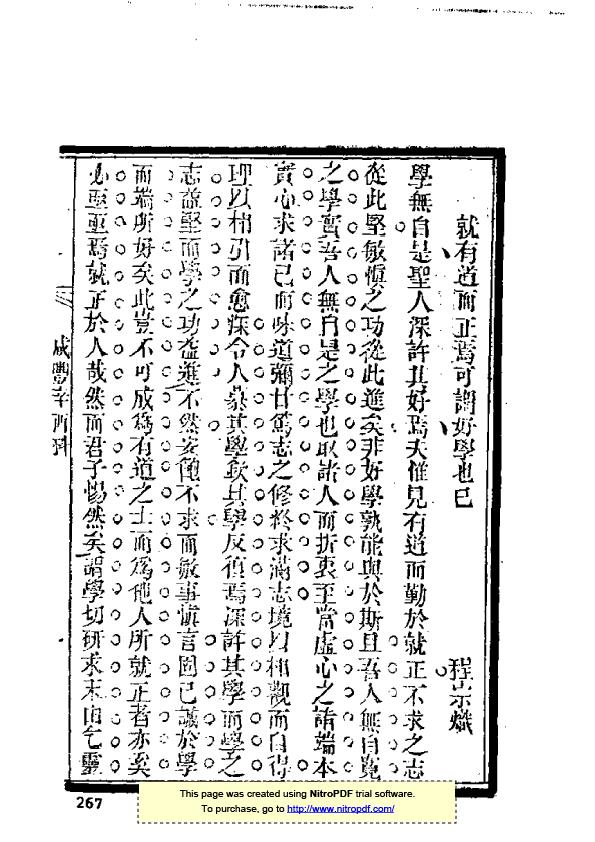 就有道而正焉可謂好學也已
程熾
學無自是聖人深許其好焉夫惟見有道而勤於就正不求之志
從此堅敏慎之功從此進矣非好學孰能與於斯且吾人無自寬
之學實吾人無自是之學也取諸人而折衷至當虛心之詣端本
實心求諸己而味道彌甘篤志之修終求滿志境以相觀而自得
理以相引而愈深令人慕其學欽其學反焉深許其學而學之
志益堅而學之功益進不然安飽不求而敏事慎言固已誠於學
而端所好矣此豈不可成為有道之士而為他人所就正者亦奚
必亟亟焉就正於人哉然而君子惕然矣謂學切研求未由乞靈
咸豐辛酉科
267
This page was created using NitroPDF trial software.
To purchase, go to http://www.nitropdf.com/